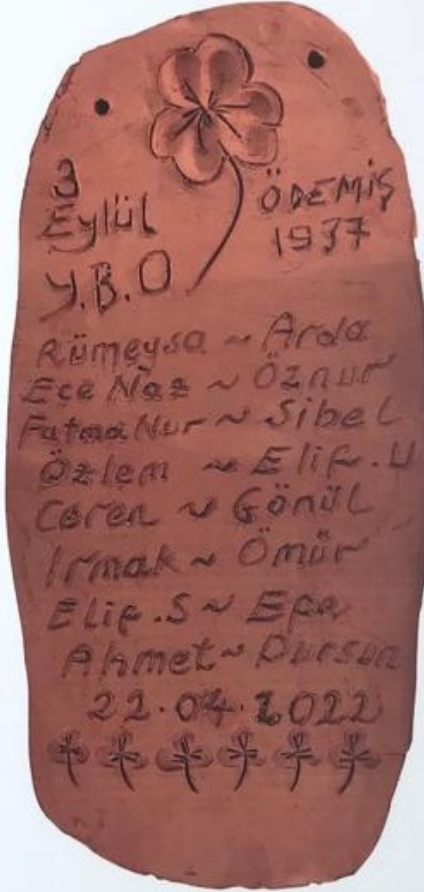 3
Eylül
Y.B.O
ÖDEMİŞ
1937
Rümeysa ~ Arda
Ece Naz ~ Öznur
Fatma Nur ~ Sibel
Özlem ~ Elif.U
Ceren ~ Gönül
Irmak ~ Ömür
Elif.S ~ Efe
Ahmet ~ Dursun
22.04.2022